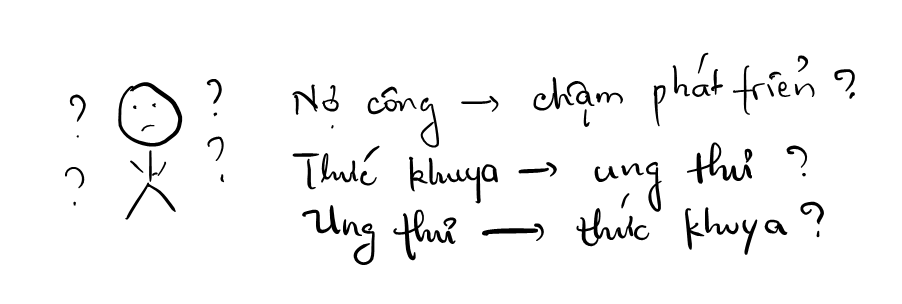 Nợ công → chậm phát triển ?
Thức khuya → ung thư ?
Ung thư → thức khuya ?
? ? ? ?